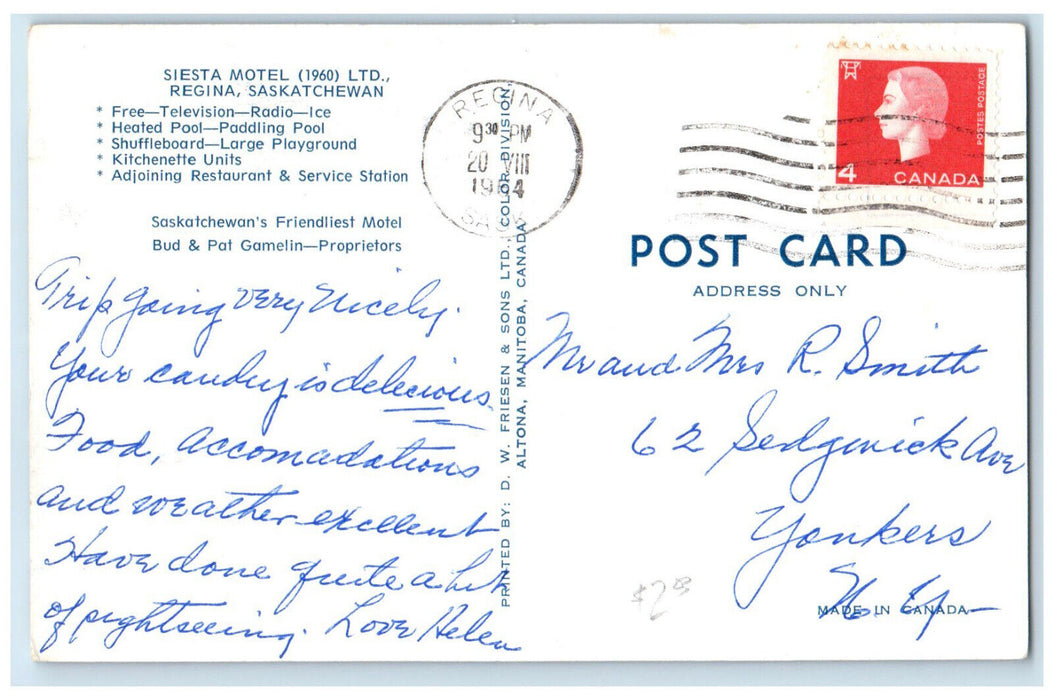 SIESTA MOTEL (1960) LTD.,
REGINA, SASKATCHEWAN
* Free—Television—Radio—Ice
* Heated Pool—Paddling Pool
* Shuffleboard—Large Playground
* Kitchenette Units
* Adjoining Restaurant & Service Station
Saskatchewan's Friendliest Motel
Bud & Pat Gamelin—Proprietors
Trip going very nicely.
Your candy is delecious.
Food, accomadations
and weather excellent
Have done quite a bit
of sightseeing. Love Helen
PRINTED BY: D. W. FRIESEN & SONS LTD., COLOR DIVISION,
ALTONA, MANITOBA, CANADA
REGINA
9 30 PM
20 VIII
1964
SASK
POSTES POSTAGE
4 CANADA
POST CARD
ADDRESS ONLY
Mr and Mrs R. Smith
62 Sedgwick Ave
Yonkers
N. Y.
$2
MADE IN CANADA